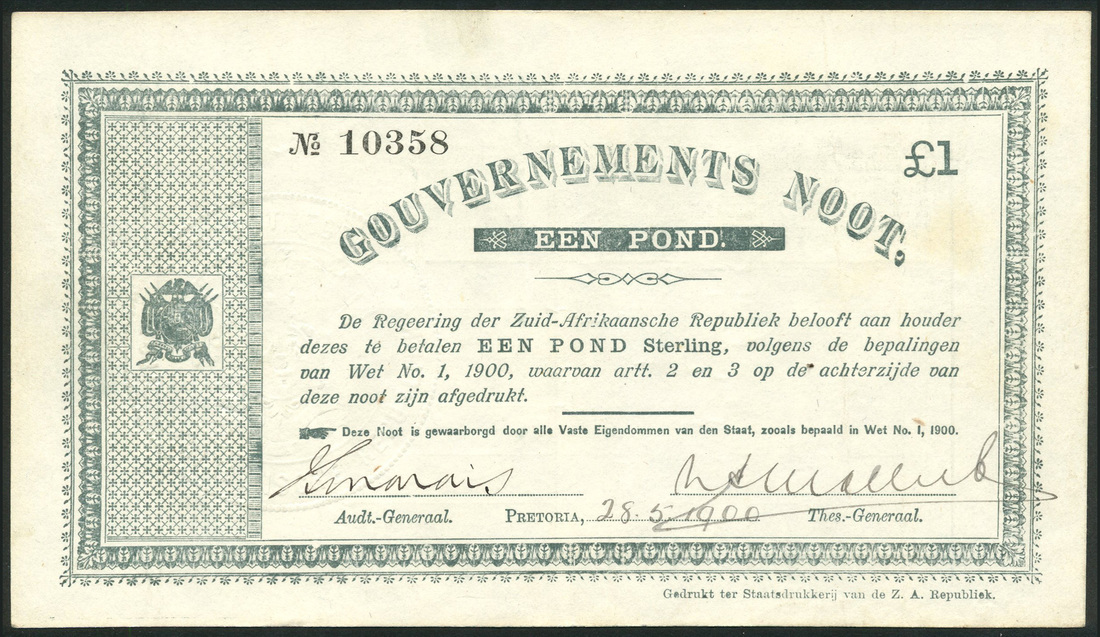 № 10358
£1
GOUVERNEMENTS NOOT,
EEN POND.
De Regeering der Zuid-Afrikaansche Republiek belooft aan houder
dezes te betalen EEN POND Sterling, volgens de bepalingen
van Wet No. 1, 1900, waarvan artt. 2 en 3 op de achterzijde van
deze noot zijn afgedrukt.
Deze Noot is gewaarborgd door alle Vaste Eigendommen van den Staat, zooals bepaald in Wet No. 1, 1900.
Audt.-Generaal. PRETORIA, 28.5.1900 Thes.-Generaal.
Gedrukt ter Staatsdrukkerij van de Z. A. Republiek.